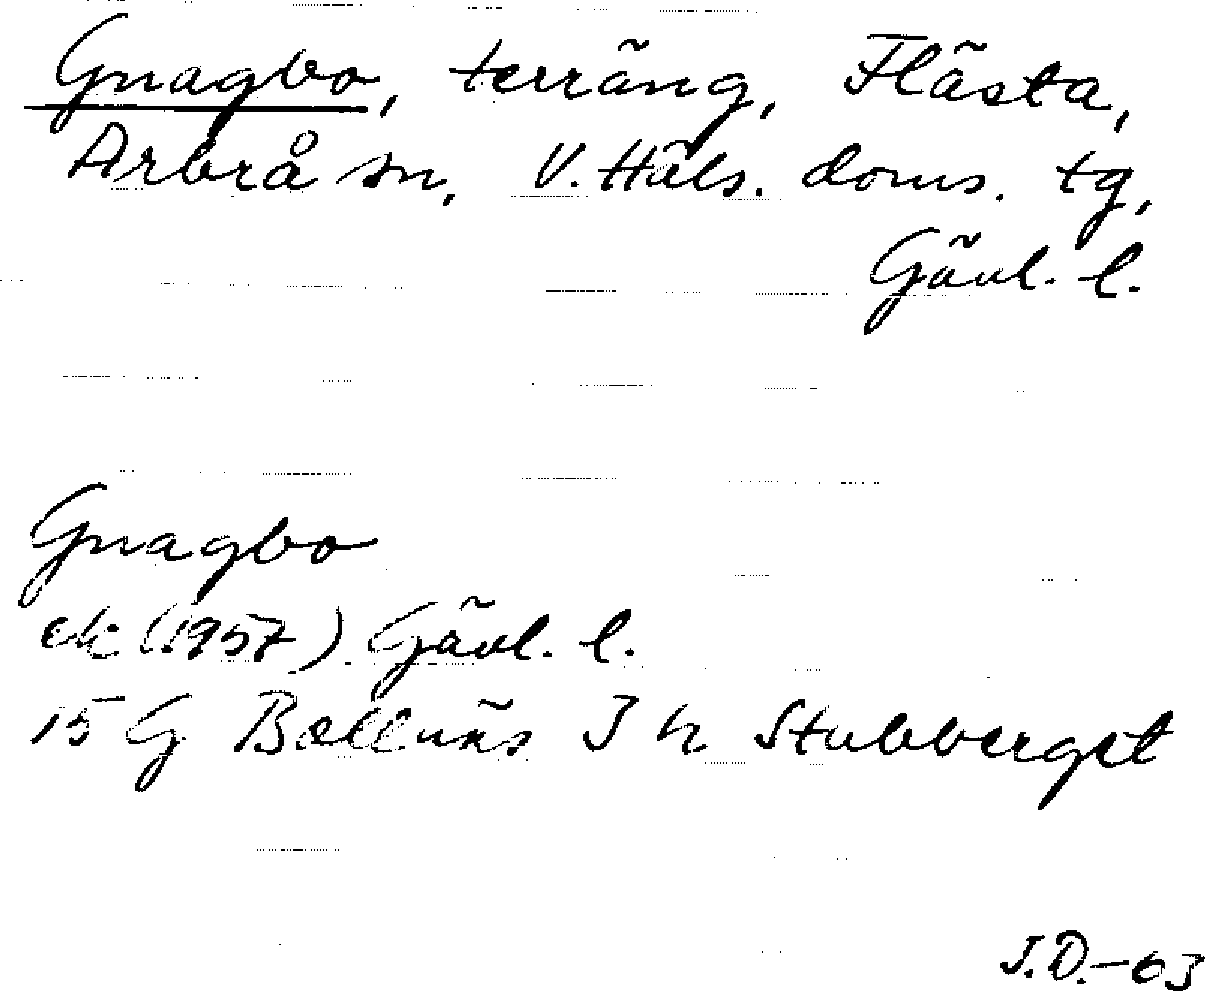 Gnagbo, terräng, Flästa,
Arbrå sn, V. Häls. doms. tg,
Gävl. l.
Gnagbo
ek (1957) Gävl. l.
15 G Bollnäs J h Stubberget
J.D.-63